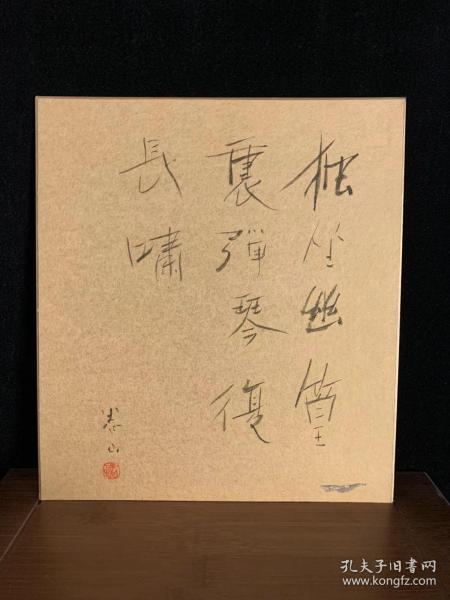 独坐幽篁
裏弾琴復
長嘯
山
孔夫子旧书网
www.kongfz.com